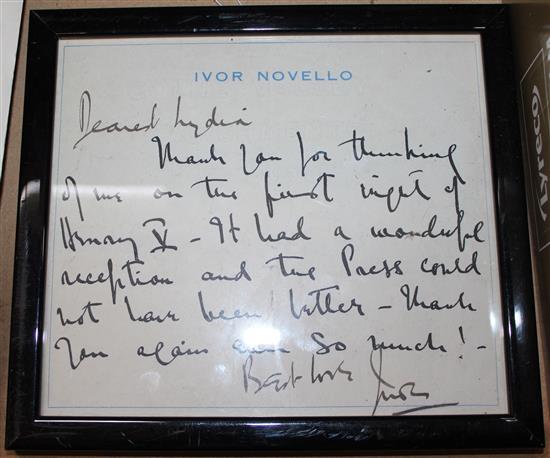 IVOR NOVELLO
Dearest Lydia
Thank you for thinking
of me on the first night of
Henry V - It had a wonderful
reception and the Press could
not have been better - Thank
you again ever so much! -
Best love Ivor
Tyreco